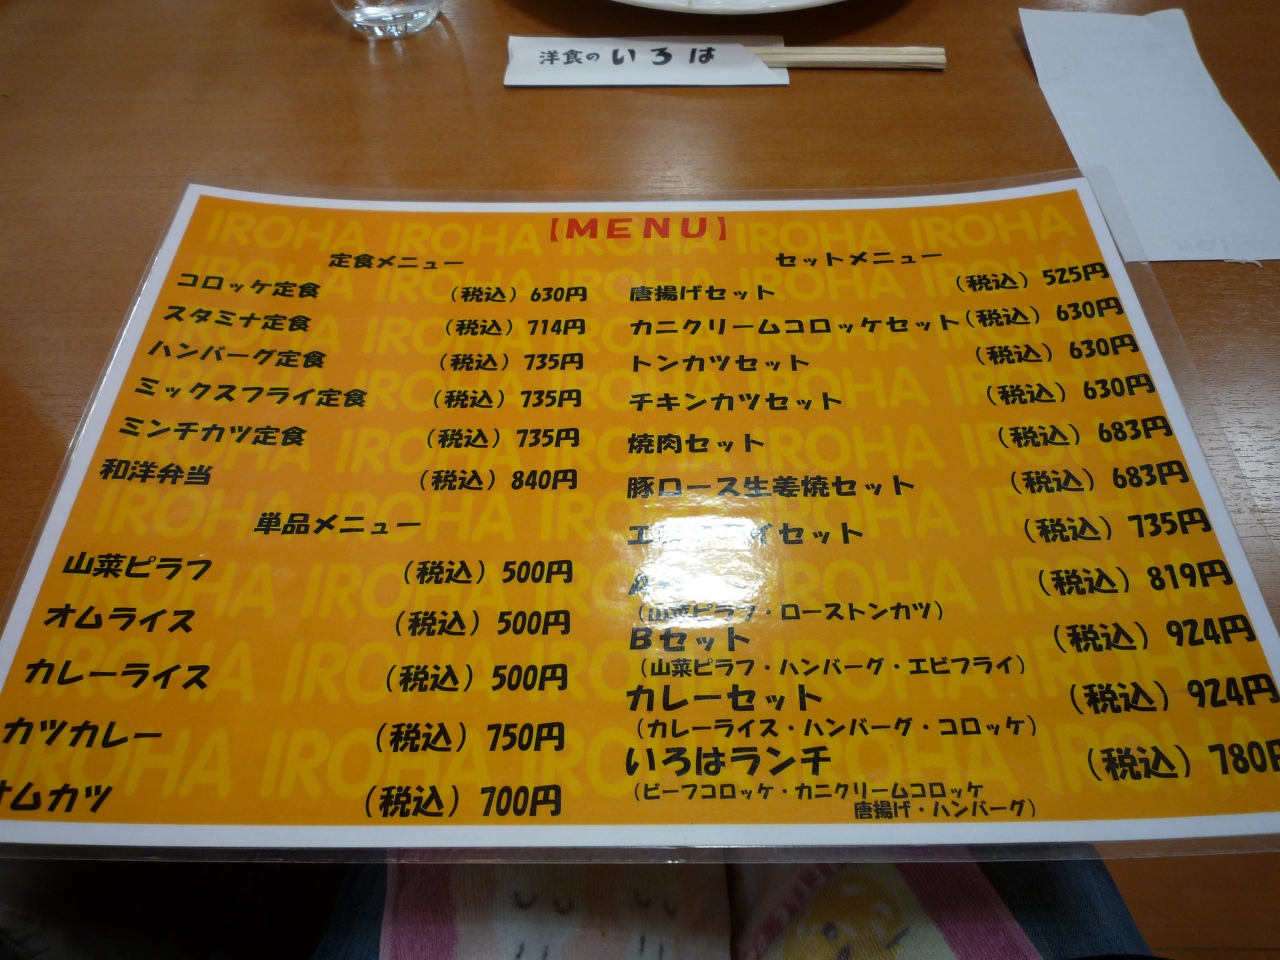 洋食の いろは
【MENU】
定食メニュー
コロッケ定食 （税込） 630円
スタミナ定食 （税込） 714円
ハンバーグ定食 （税込） 735円
ミックスフライ定食 （税込） 735円
ミンチカツ定食 （税込） 735円
和洋弁当 （税込） 840円
単品メニュー
山菜ピラフ （税込） 500円
オムライス （税込） 500円
カレーライス （税込） 500円
カツカレー （税込） 750円
オムカツ （税込） 700円
セットメニュー
唐揚げセット （税込） 525円
カニクリームコロッケセット （税込） 630円
トンカツセット （税込） 630円
チキンカツセット （税込） 630円
焼肉セット （税込） 683円
豚ロース生姜焼セット （税込） 683円
エビフライセット （税込） 735円
（税込） 819円
（山菜ピラフ・ローストンカツ）
Bセット （税込） 924円
（山菜ピラフ・ハンバーグ・エビフライ）
カレーセット （税込） 924円
（カレーライス・ハンバーグ・コロッケ）
いろはランチ （税込） 780円
（ビーフコロッケ・カニクリームコロッケ
唐揚げ・ハンバーグ）